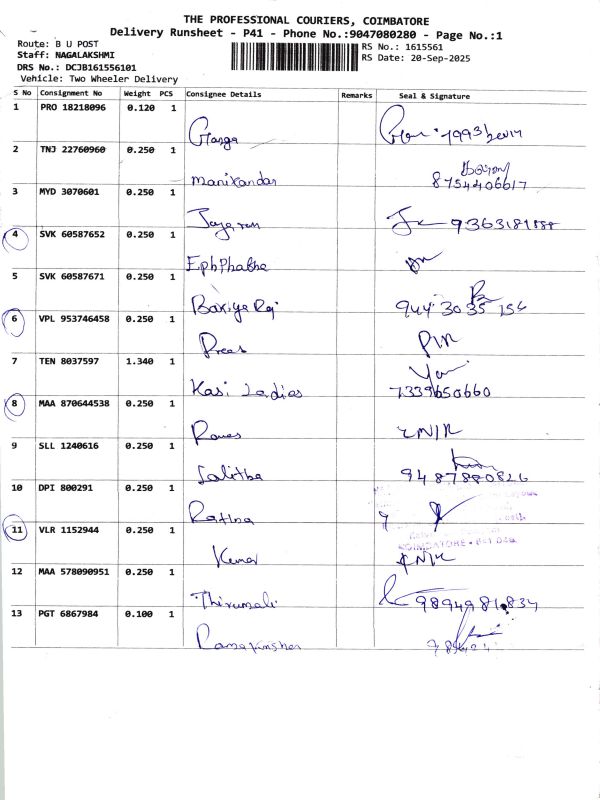 THE PROFESSIONAL COURIERS, COIMBATORE
Delivery Runsheet - P41 - Phone No.:9047080280 - Page No.:1
Route: B U POST
RS No.: 1615561
Staff: NAGALAKSHMI
RS Date: 20-Sep-2025
DRS No.: DCJB161556101
Vehicle: Two Wheeler Delivery
S No Consignment No Weight PCS Consignee Details Remarks Seal & Signature
1 PRO 18218096 0.120 1 Ganga
2 TNJ 22760960 0.250 1 Manikandan 8754406617
3 MYD 3070601 0.250 1 Jayaram
4 SVK 60587652 0.250 1
5 SVK 60587671 0.250 1 Bakiya Raj 944 30 35 156
6 VPL 953746458 0.250 1
7 TEN 8037597 1.340 1 Kasi Ladies 7339650660
8 MAA 870644538 0.250 1
9 SLL 1240616 0.250 1 Lalitha 9487880826
10 DPI 800291 0.250 1 Ratina
COIMBATORE
11 VLR 1152944 0.250 1 Kumar
12 MAA 578090951 0.250 1 Thirumali 9894981834
13 PGT 6867984 0.100 1